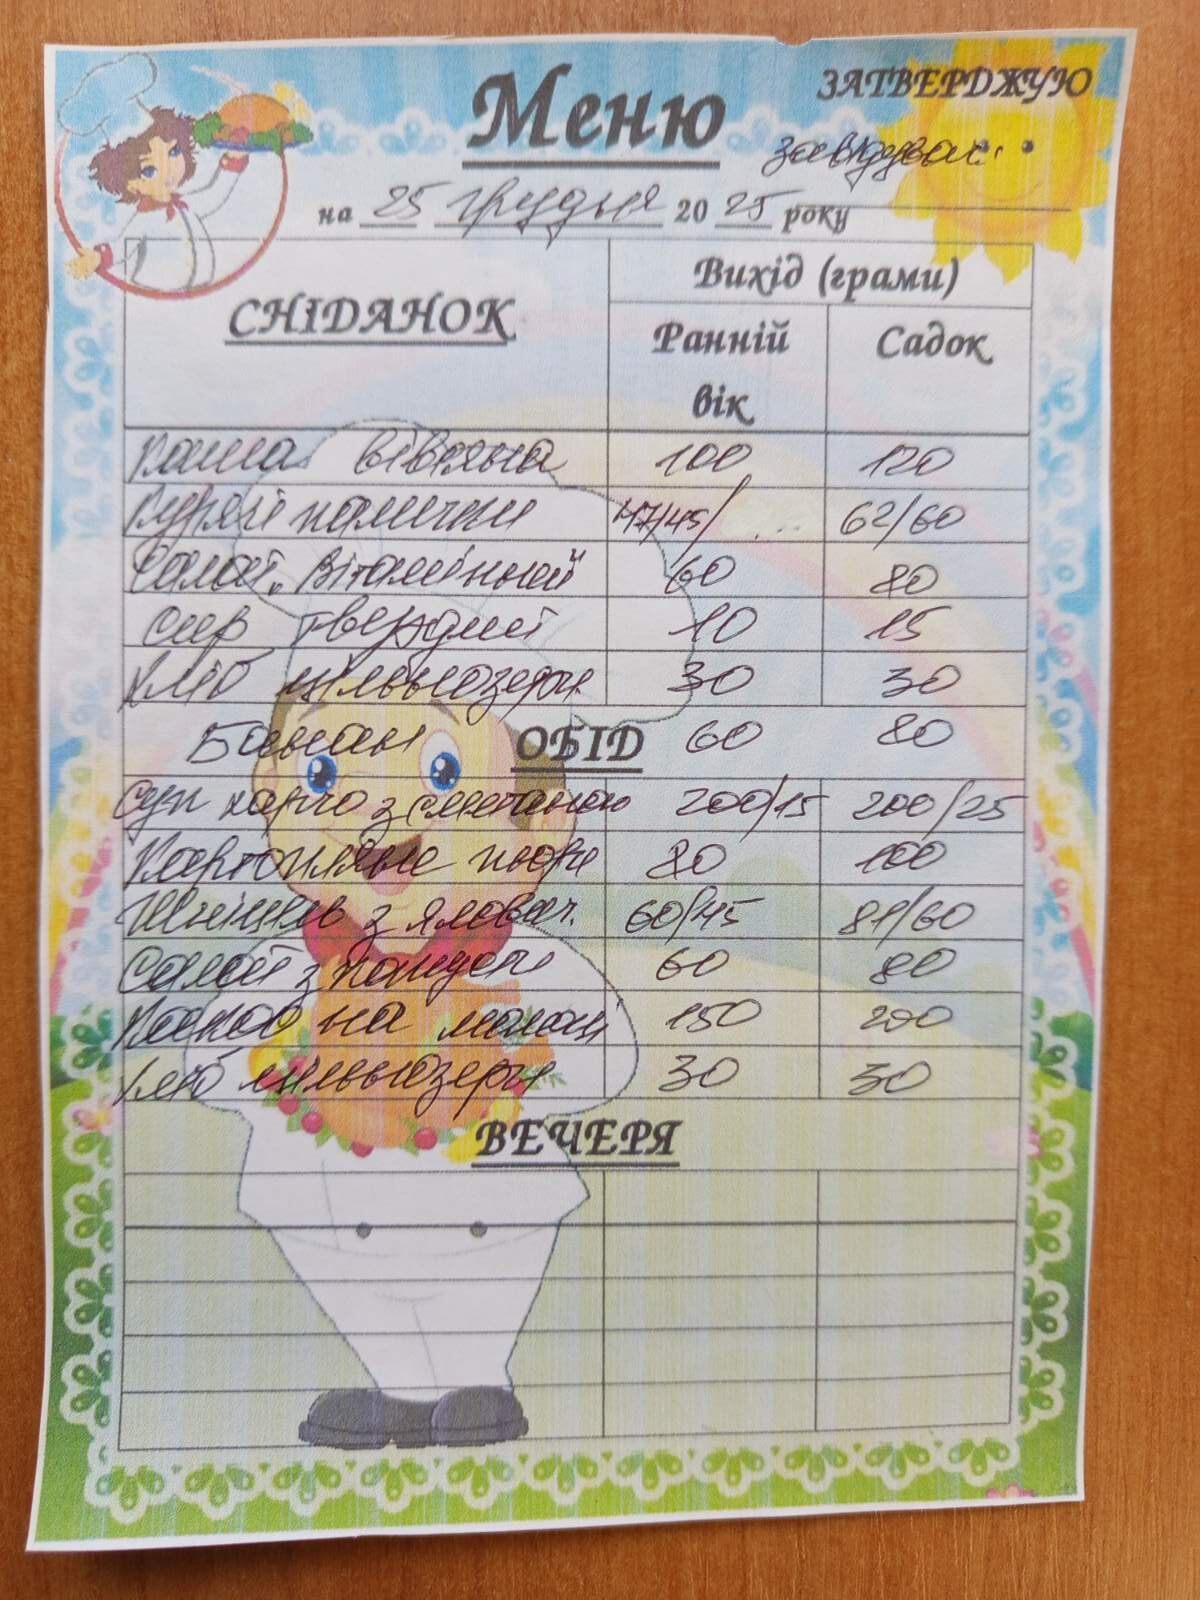 Меню
ЗАТВЕРДЖУЮ
завідувач
на 25 грудня 2025 року
СНІДАНОК
Вихід (грами)
Ранній вік
Садок
Каша вівсяна 100 120
Курячі палички 47/45/ 62/60
Салат „Вітамінний" 60 80
Сир твердий 10 15
Хліб цільнозерн. 30 30
Банан ОБІД 60 80
Суп харчо з сметаною 200/15 200/25
Картопляне пюре 80 100
Шніцель з ялович. 60/45 81/60
Салат з 60 80
Какао на молоці 150 200
Хліб цільнозерн 30 30
ВЕЧЕРЯ